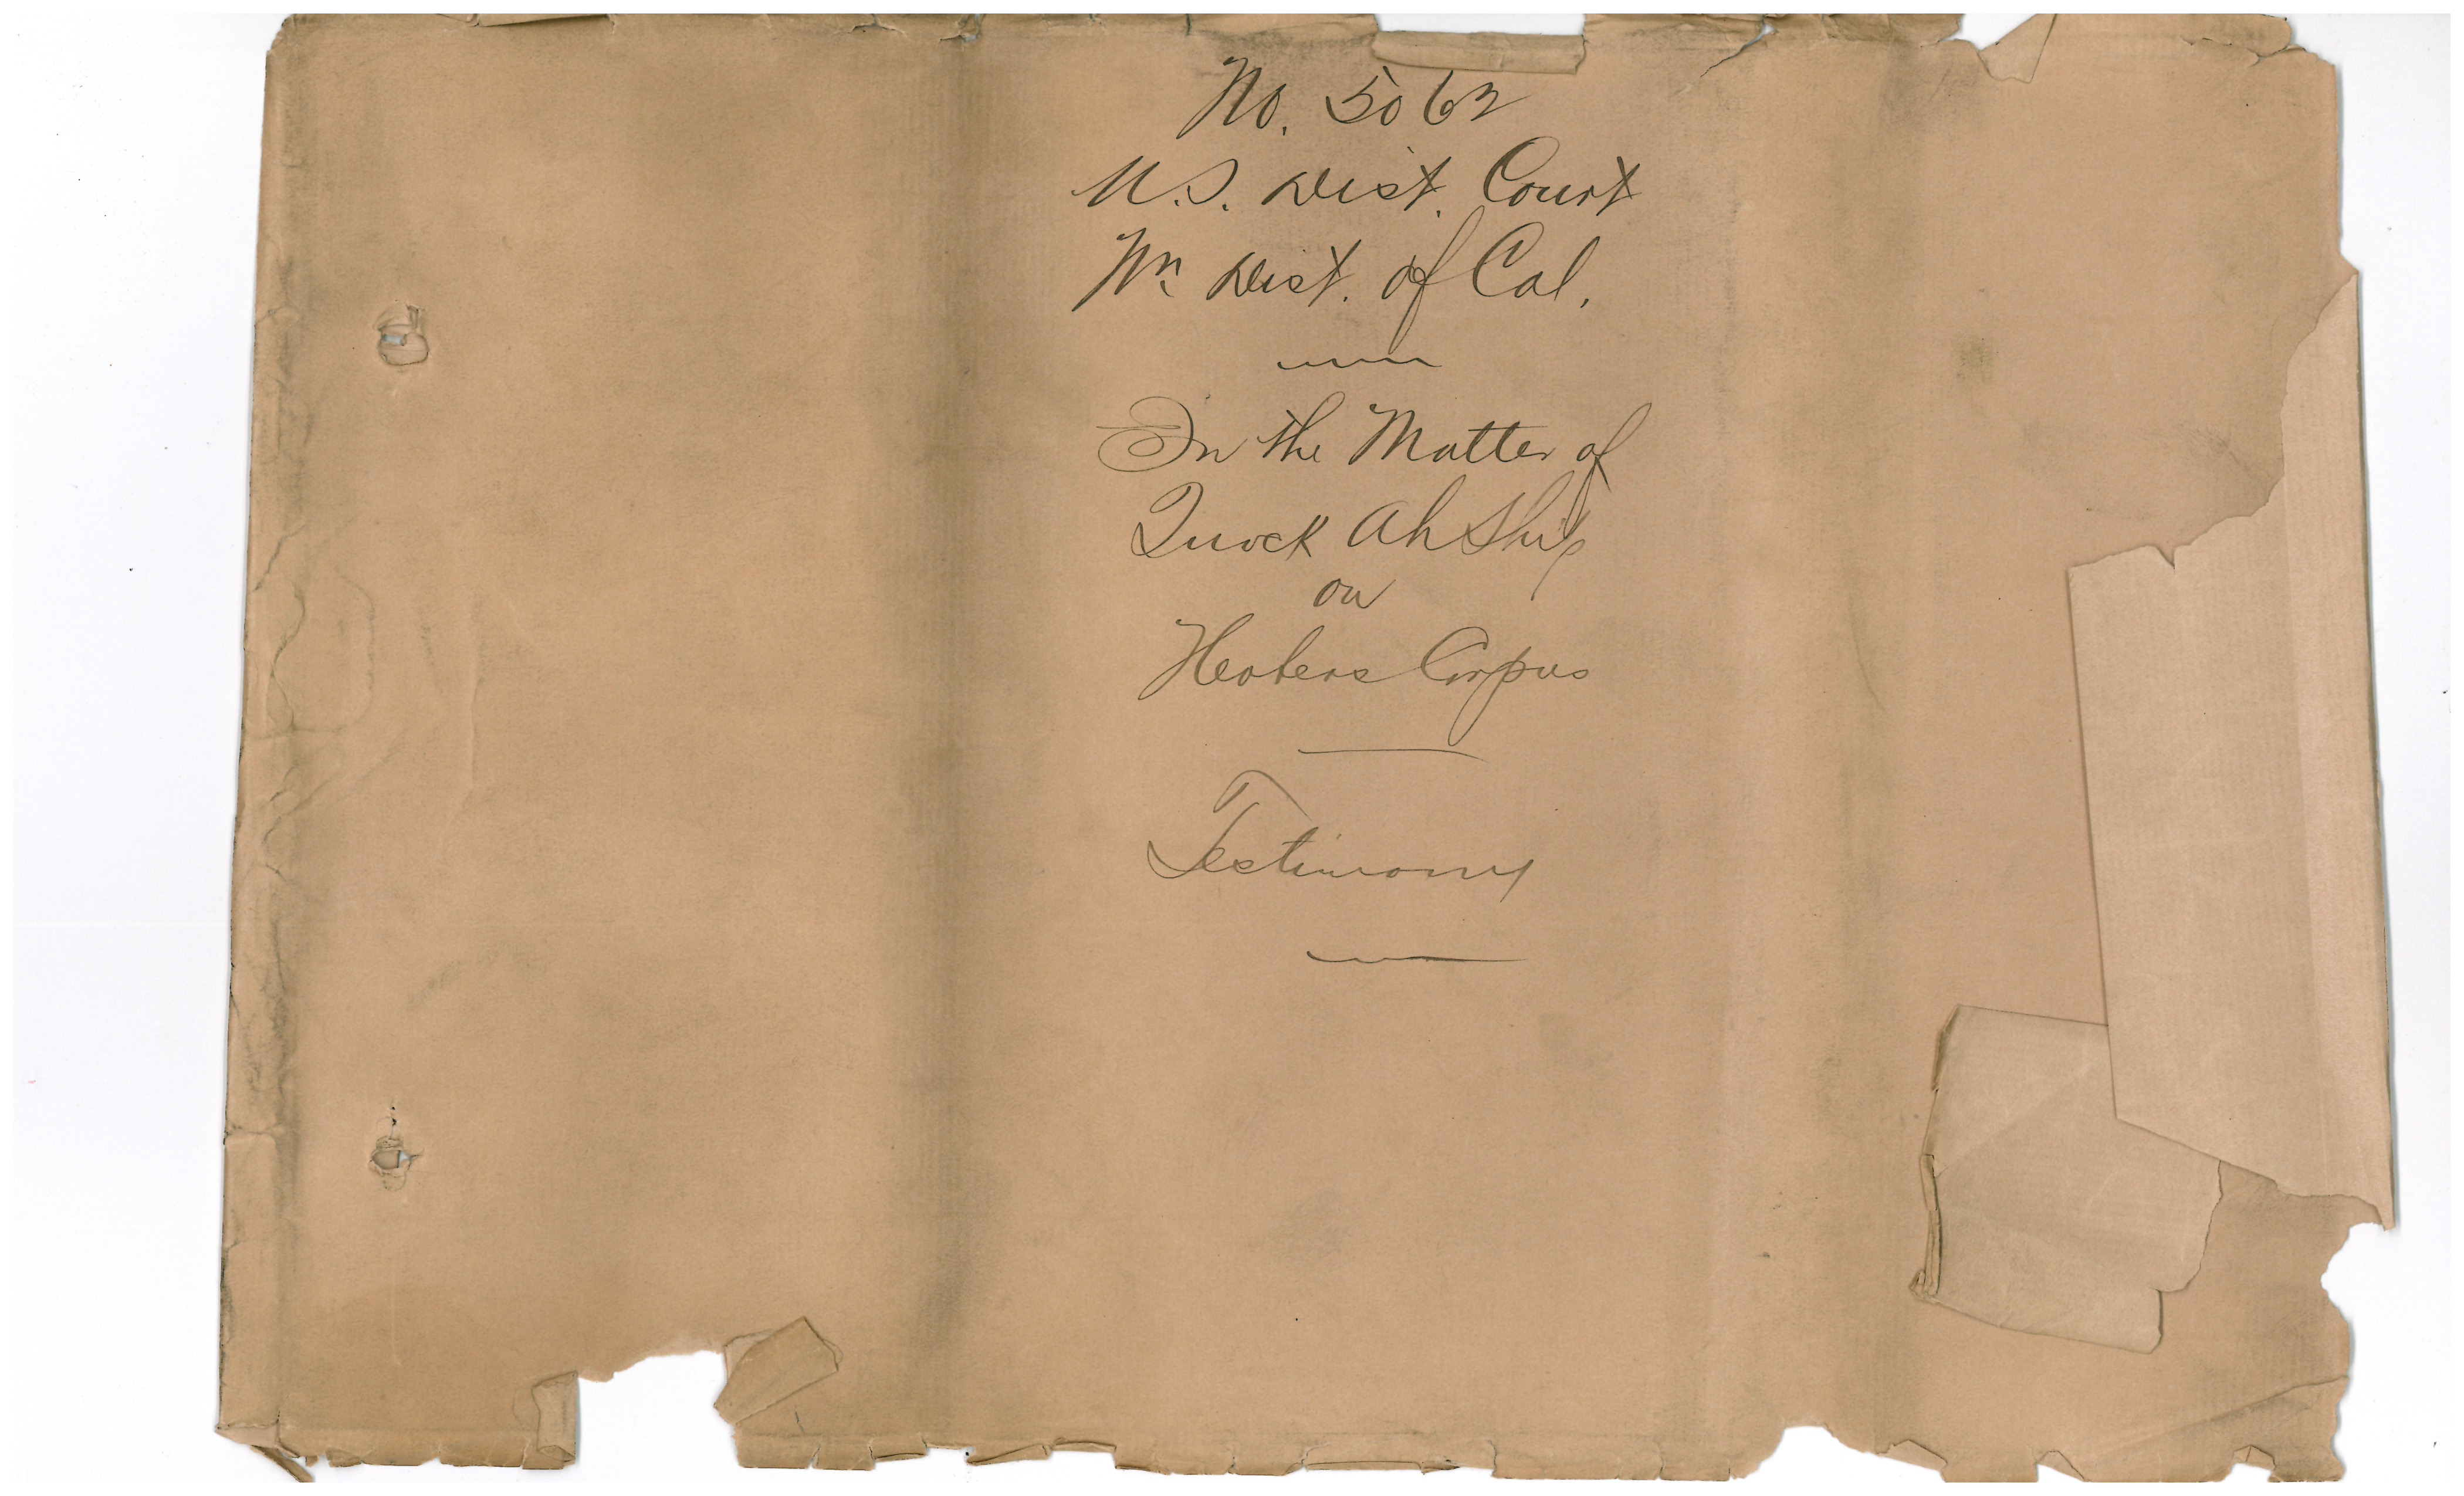 No. 5062
U.S. Dist. Court
Nn Dist. of Cal.
In the Matter of
Quock Ah Ship
on
Heabeas Corpus
Testimony